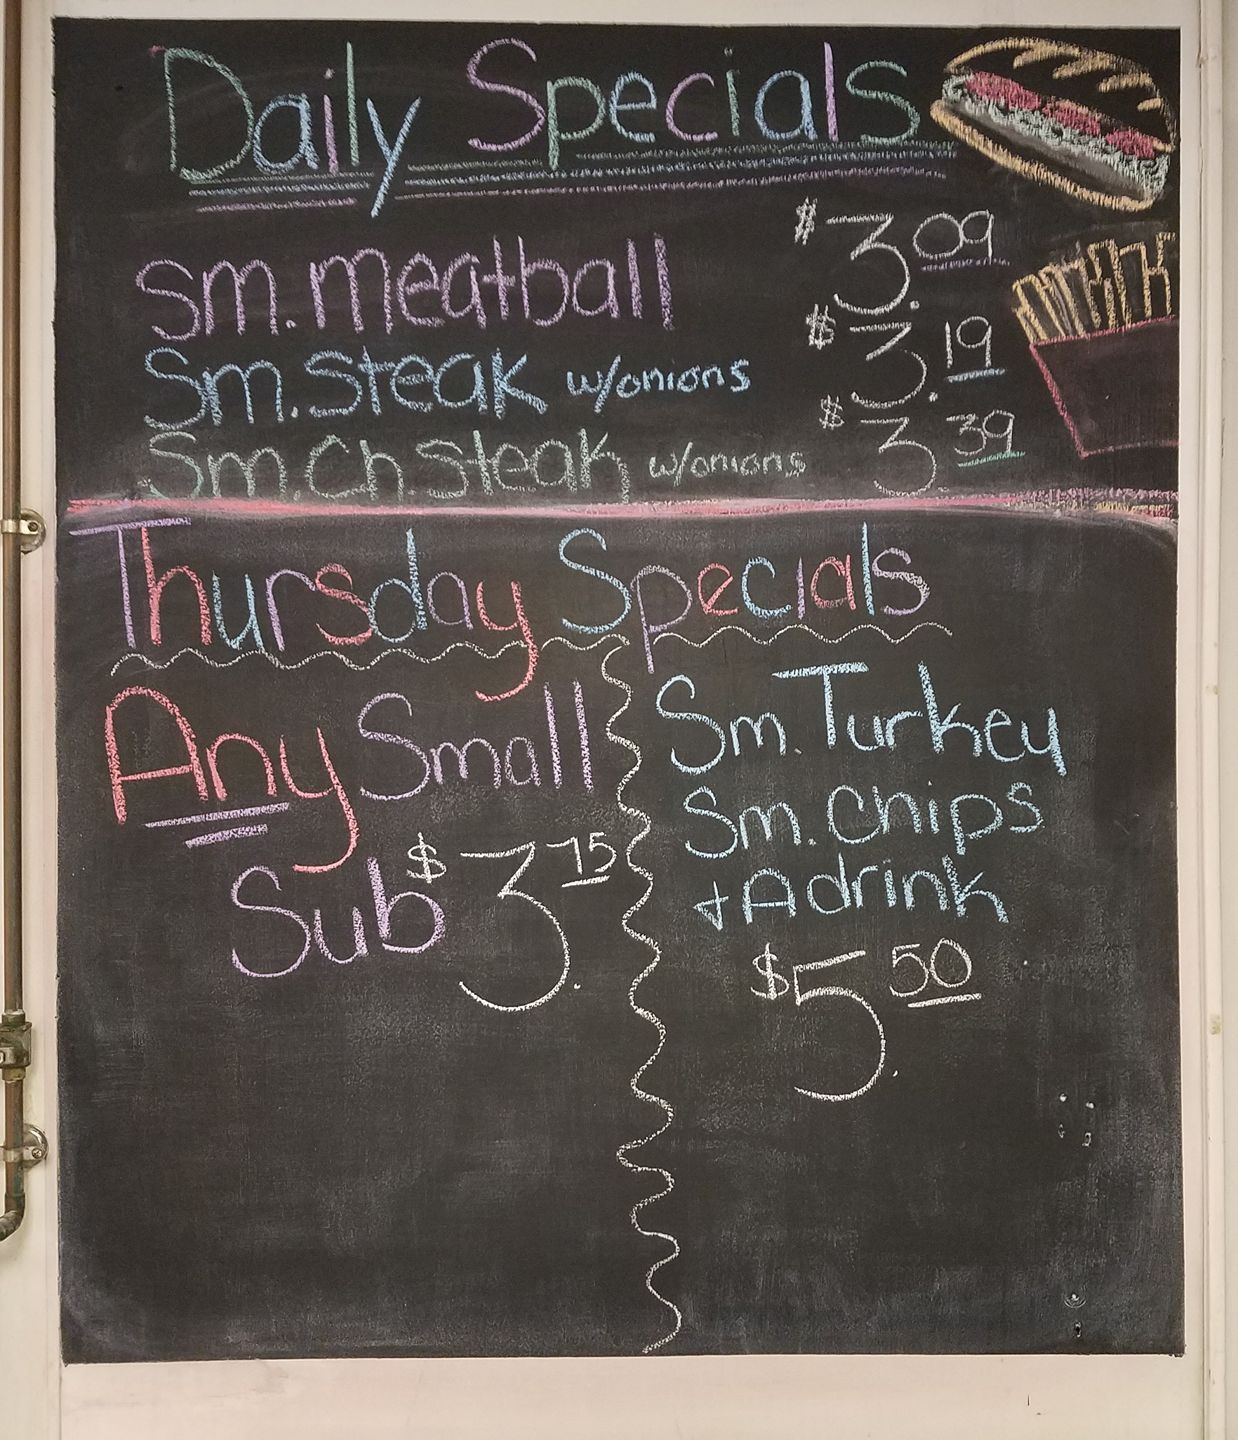 Daily Specials
sm. meatball $3.09
Sm. Steak w/onions $3.19
Sm. Ch. steak w/onions $3.39
Thursday Specials
Any Small
Sub $3.75
Sm. Turkey
Sm. Chips
+ A drink
$5.50